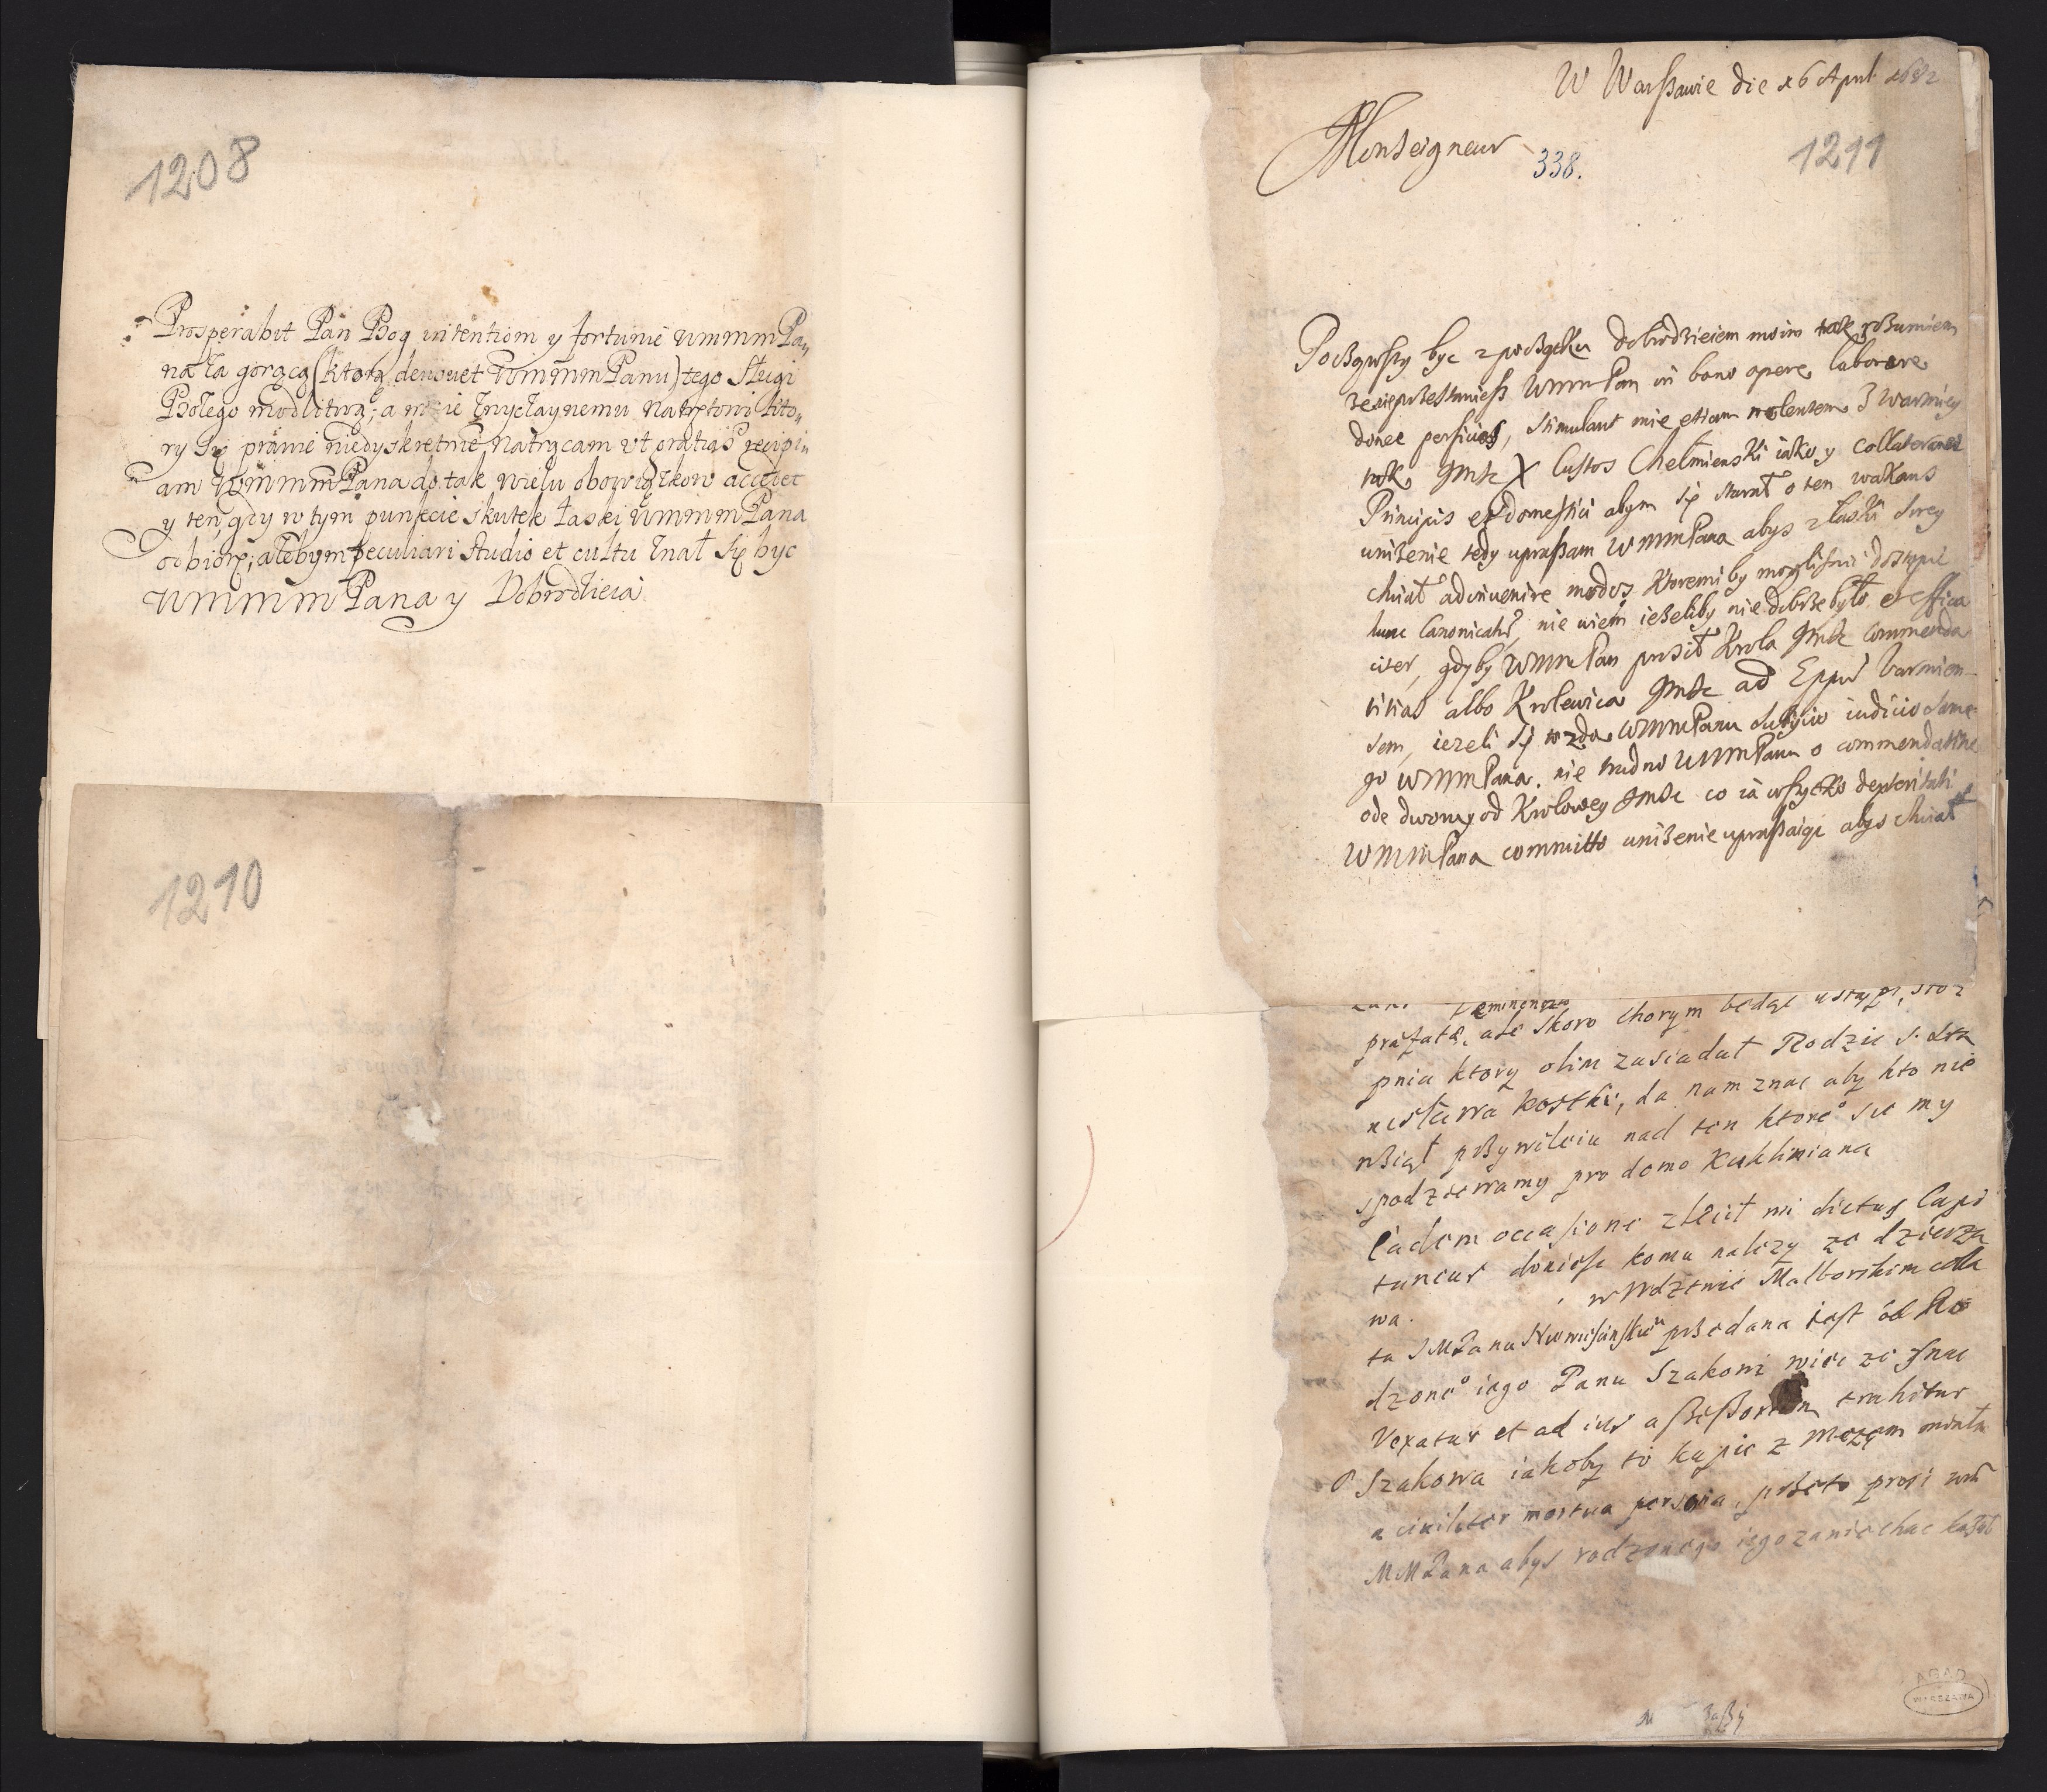 1208
Prosperabit Pan Bog intentiom y fortunie WMMM Pa„
na ta gorącą (ktorą deuouet WMMM Panu) tego Sługi
Bożego modlitwą; a mnie zwyczaynemu natrętowi kto„
ry się prawie niedyskretnie natrącam vt gratias recipi„
am WMMM Pana do tak wielu obowiązkow accedet
y ten, gdy w tym punkcie skutek łaski WMMM Pana
odbiorę; ażebym peculiari studio et cultu znał się byc
WMMM Pana y Dobrodzieia
1210
W Warszawie die 16 April 1682
Monseigneur
338.
1211
Począwszy byc z początku dobrodzieiem moim tak rozumiem
że nieprzestaniesz WMM Pan in bono opere laborare
donec perficias, stimulant mie etiam nolentem z Warmiey
tak Jmśc X Custos Chełmienski iako y collaterales
Principis et domestici abym się starał o ten wakans
uniżenie tedy upraszam WMM Pana abys z łaski swey
chciał adinuenire modos ktoremi by mogliśmi dostąpic
hunc Canonicatum, nie wiem ieżeliby nie dobrze było et effica
citer, gdyby WMM Pan prosił Krola Jmśc commenda
titias albo Krolewica Jmśc ad Eppum Varmien-
sem, ieżeli się to zda WMM Panu subijcio iudicio same-
go WMM Pana. nie trudno WMM Panu o commendatitie
ode dworu y od Krolowey Jmśc co ia wszytko dexteritati
WMM Pana committo uniżenie upraszaiąc abys chciał
eminenza
præfata, ale skoro chorym będąc ustąpi, sto z
pnia ktory olim zasiadał Rodzic s. Sta
nisława Kostki, da nam znac aby kto nie
wziął przywileiu nad ten ktoreo sie my
spodziewamy pro domo Kuklimiana
Eadem occasione zlecił mi dictus Capi
taneus doniesc komu nalezy ze dzierza
wa. w Wdztwie Malborskim
ta JMPana przedana iest od Ro
dzoneo iego Panu Szakowi wiec ze
Vexatur et ad ius assessorium trahitur
P Szakowa iakoby to kupic z mezem miała
a ciuiliter mortua persona, przeto prosi WM
MMPana abys rodzonego iego zaniechac kazał
AGAD
WARSZAWA